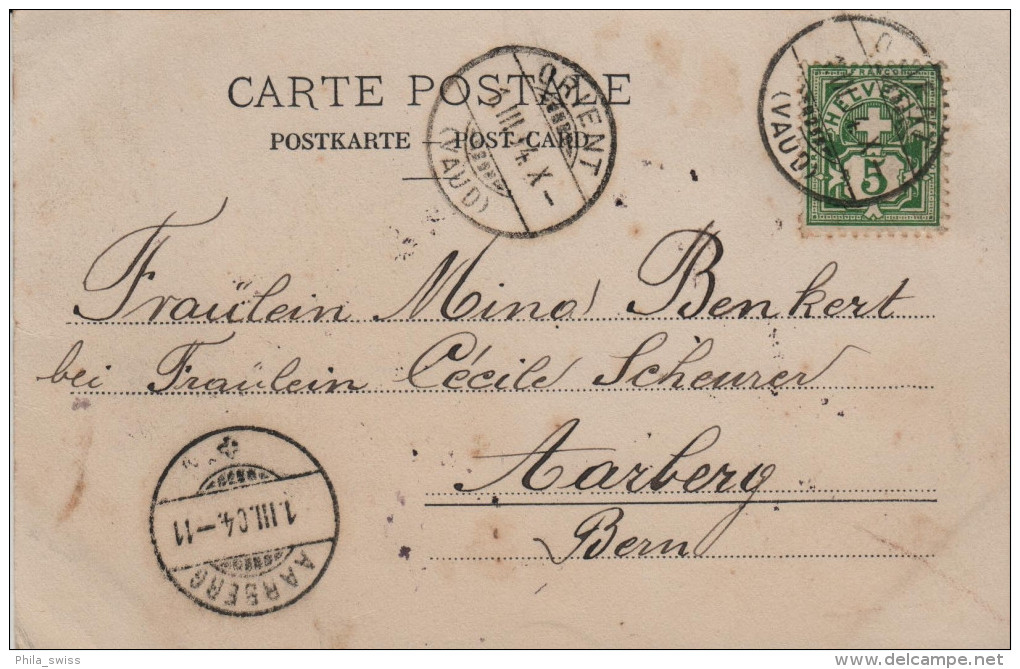 CARTE POSTALE
POSTKARTE — POST-CARD
ORVENT
III.04.X-
(VAUD)
FRANCO
HELVETIA
5
(VAUD)
Fräulein Mina Benkert
bei Fräulein Cécile Scheurer
Aarberg
Bern
1.III.04.-11
AARBERG
Phila_swiss
delcampe.net